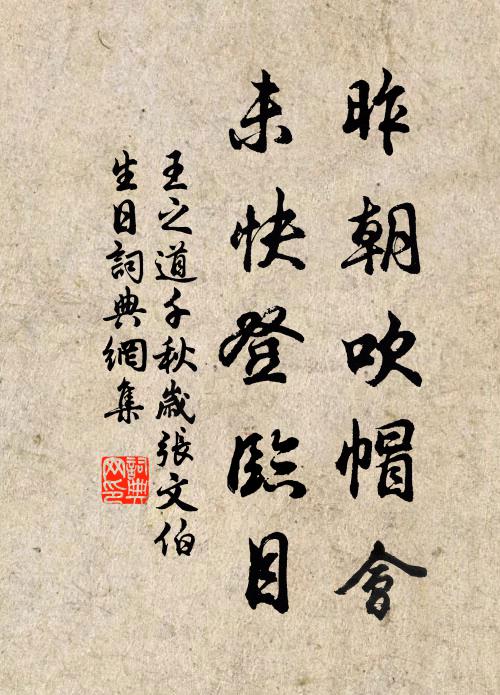 昨朝吹帽會
未快登臨目
王之道千秋歲張文伯
生日詞典網集
詞典網印